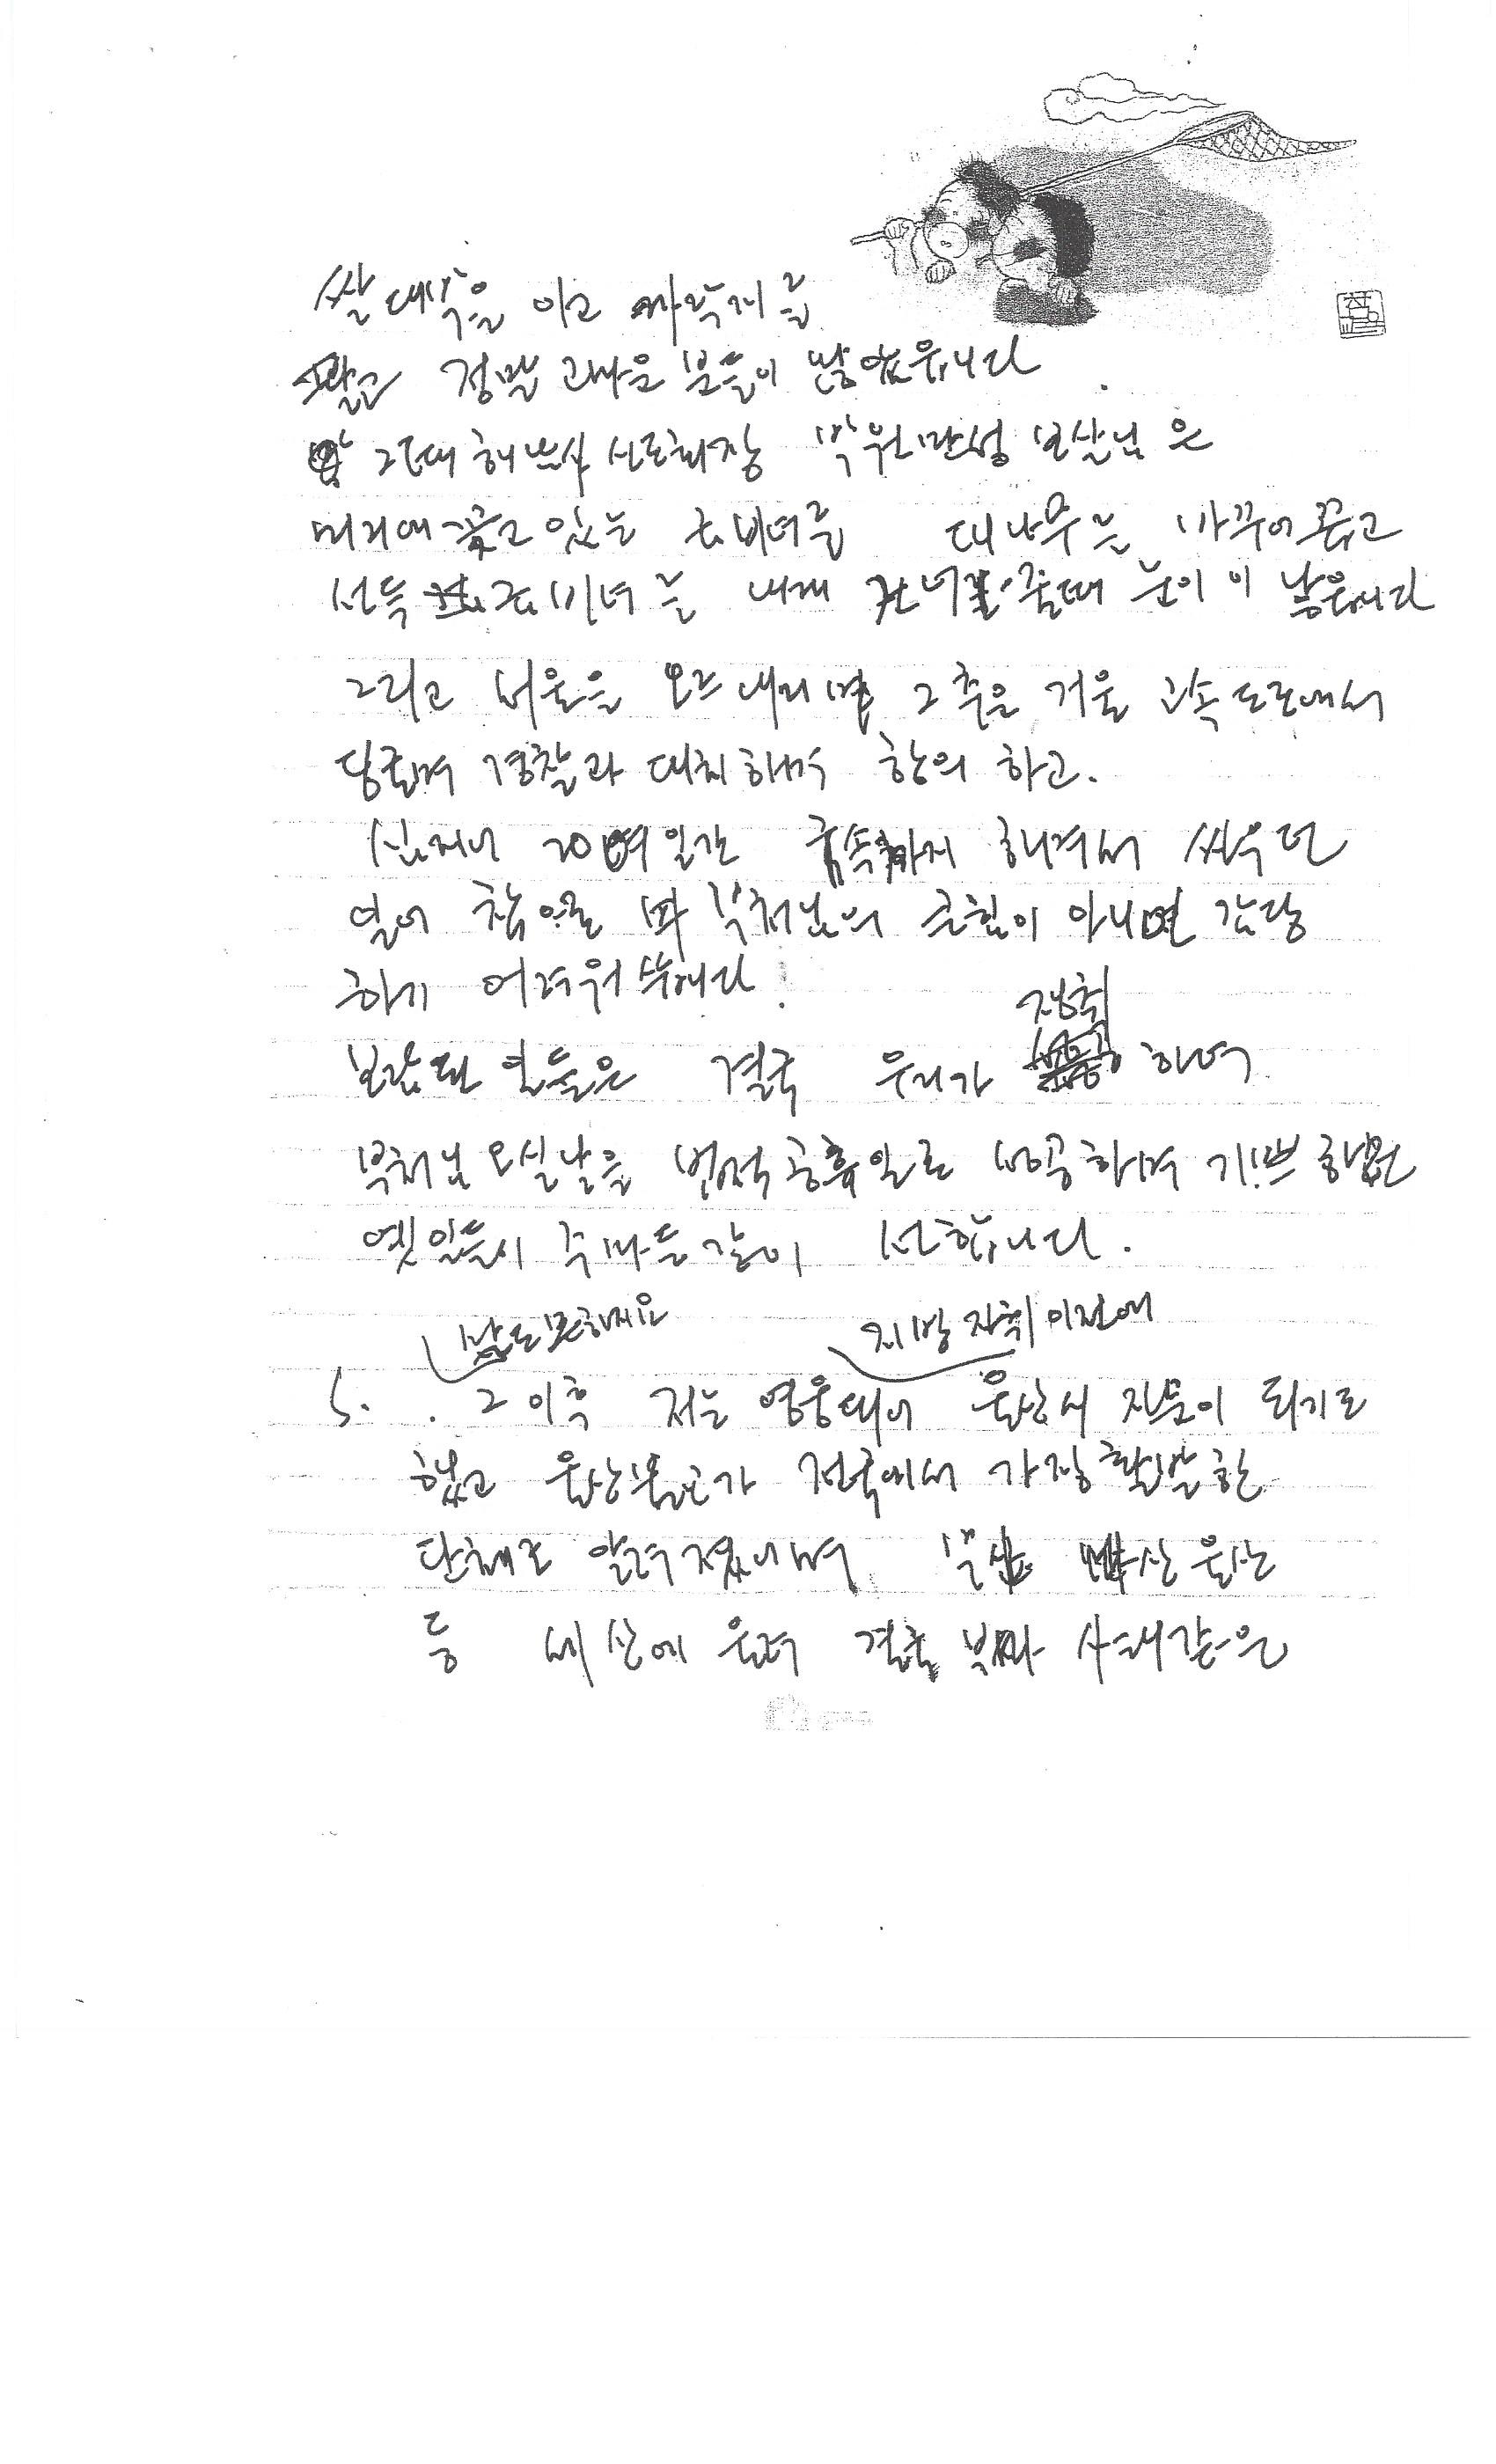 쌀 대주을 이고 까락지를
팔고 정말 고마운 분들이 많았읍니다
그때 해남사 신도회장 박원만성 보살님은
머리에 꽂고 있는 금비녀를 대나무로 바꾸어 꽂고
선득 금비녀를 내게 건너줄때 눈이 이 남읍니다
그리고 서울을 오르내리며 그 추운 겨울 고속도로에서
당국의 경찰과 대치하며 항의 하고.
심지어 20여일간 구속까지 해가며 싸우던
일이 참으로 부처님의 큰힘이 아니면 감당
하기 어려워쓰니다!
보람된 일들은 결국 우리가 쟁취 하여
부처님 오신날을 법정공휴일로 성공하여 기쁘하였던
옛 일들이 주마등같이 선합니다.
날도 모하세요 지방 자치 이전에
5. 그 이후 저는 영웅되어 울산시 자문이 되기도
했고 울산불교가 전국에서 가장 활발한
단체로 알려졌으며 부산 마산 울산
등 세 산에 울려 결국 부마 사태같은